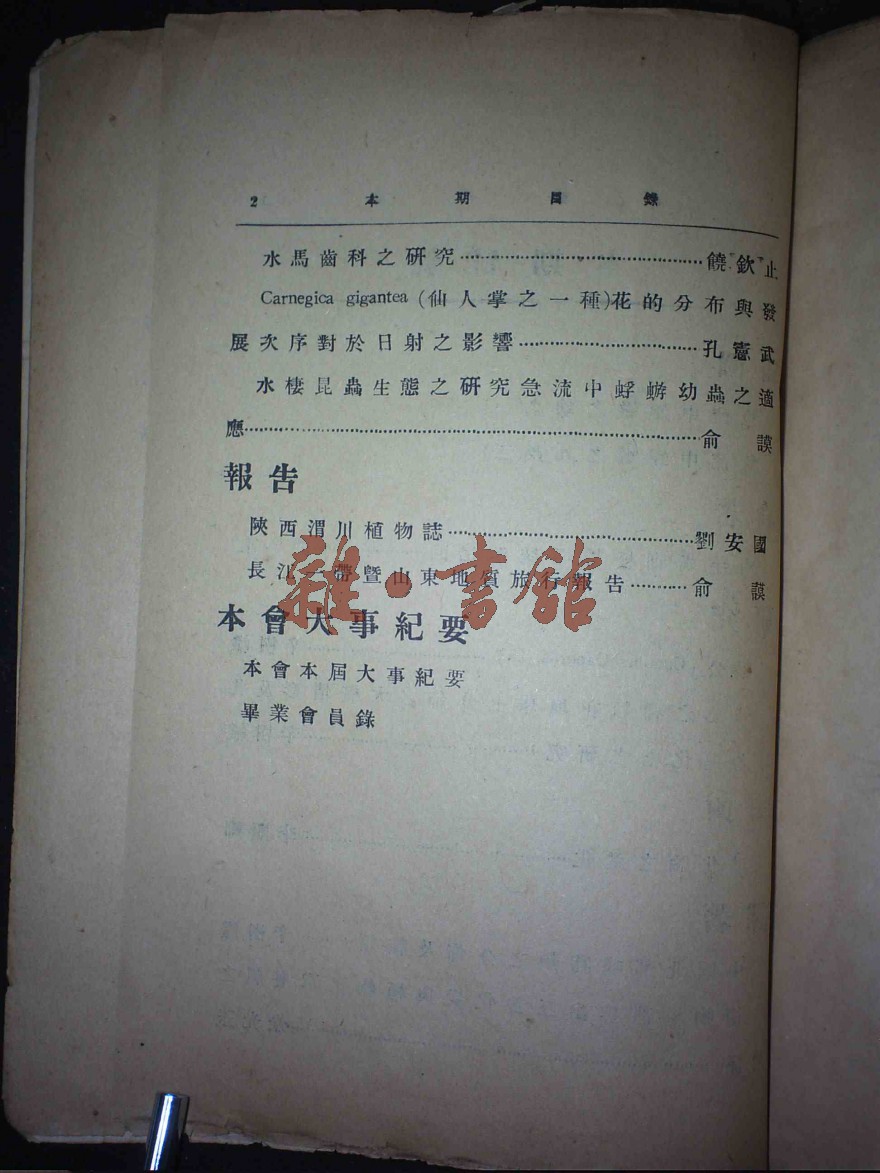 2 本期目錄
水馬齒科之研究……饒欽止
Carnegica gigantea (仙人掌之一種)花的分布與發
展次序對於日射之影響……孔憲武
水棲昆蟲生態之研究急流中蜉蝣幼蟲之適
應……俞謨
報告
陝西渭川植物誌……劉安國
長江一帶暨山東地質旅行報告……俞謨
本會大事紀要
本會本屆大事紀要
畢業會員錄
雜·書館